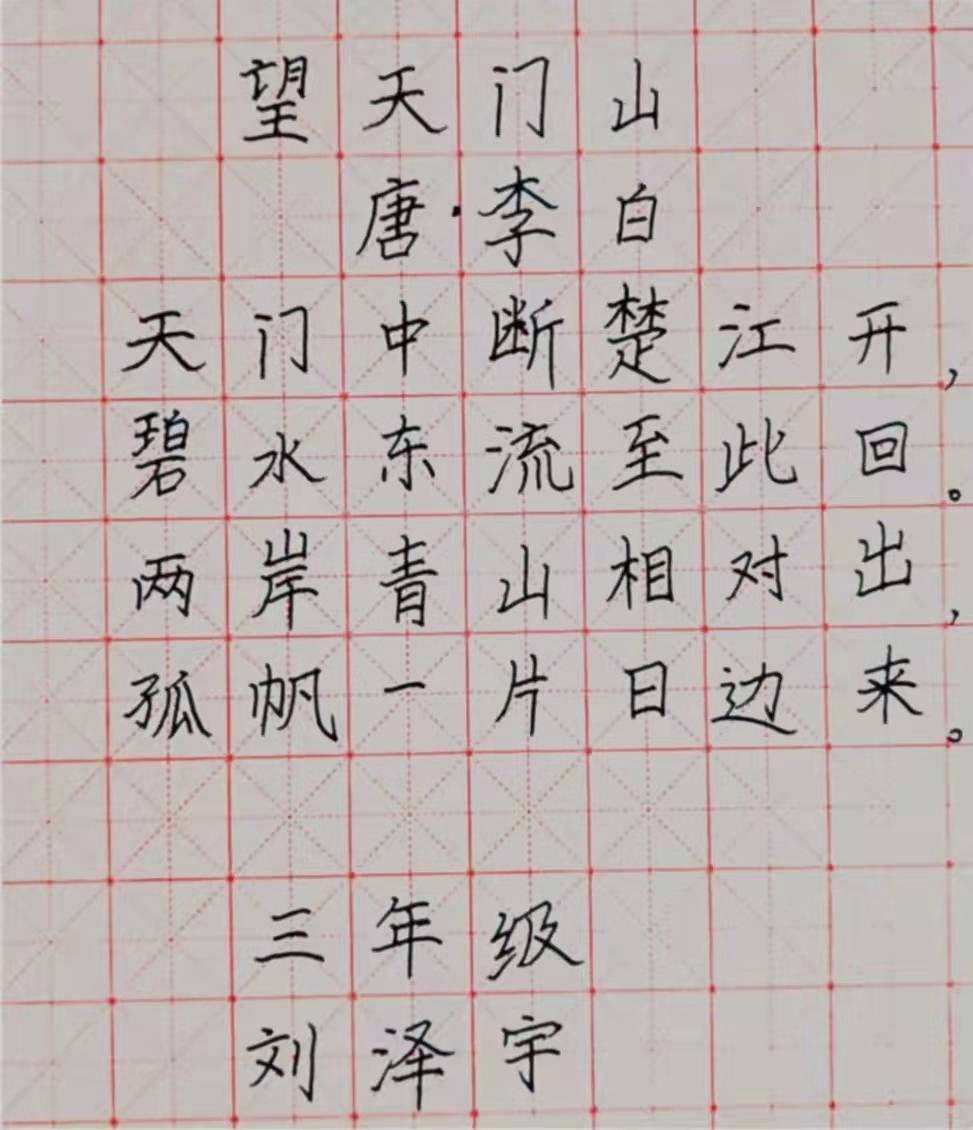 望天门山
唐·李白
天门中断楚江开,
碧水东流至此回。
两岸青山相对出,
孤帆一片日边来。
三年级
刘泽宇